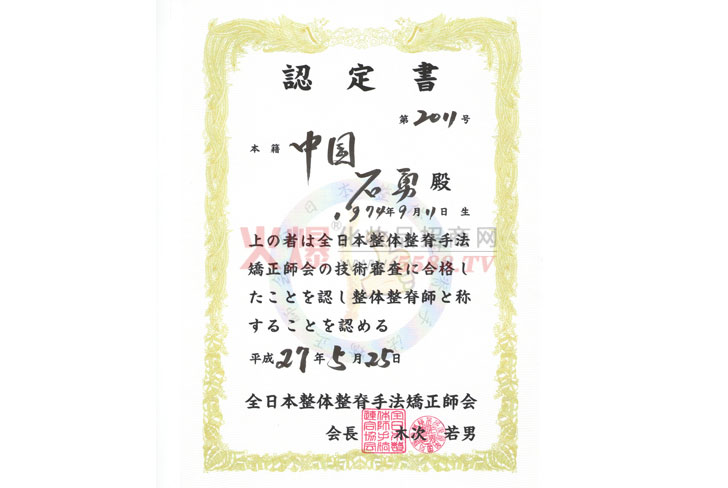 認定書
第2011号
本籍 中国
石勇 殿
1974年9月11日 生
火爆化妆品招商网
5588.TV
上の者は全日本整体整脊手法
矯正師会の技術審査に合格し
たことを認し整体整脊師と称
することを認める
平成27年5月25日
全日本整体整脊手法矯正師会
会長 木次 若男